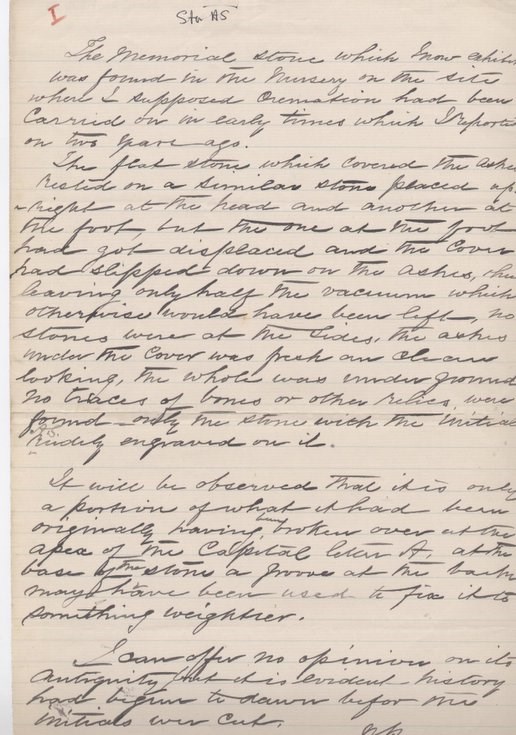 I
Stn AS
The Memorial stone which I now exhibit
was found in the Nursery on the site
where I supposed Cremation had been
Carried on in early times which I reported
on two years ago.
The flat stone which covered the ashes
rested on a similar stone placed up-
right at the head and another at
the foot, but the one at the foot
had got displaced and the Cover
had slipped down on the ashes, thus
leaving only half the vacuum which
otherwise would have been left, no
stones were at the sides, the ashes
under the Cover was fresh an clean
looking, the whole was under ground
no traces of bones or other relics were
found only the stone with the initials
rudely engraved on it.
It will be observed that it is only
a portion of what it had been
originally having been broken over at the
apex of the Capital letter A, at the
base of the stone a groove at the back
may have been used to fix it to
something weightier.
I can offer no opinion on its
antiquity but it is evident history
had begun to dawn befor the
initials wer cut.